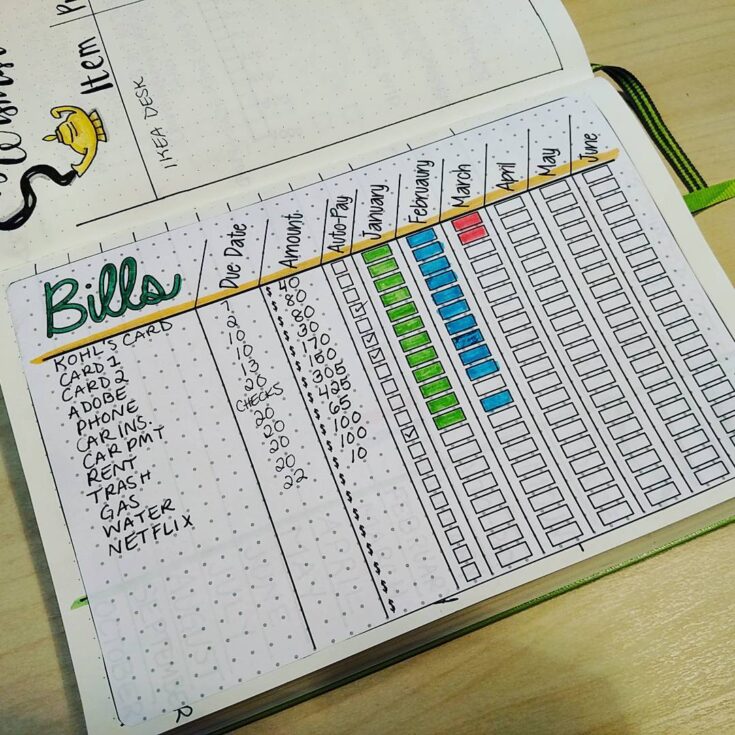 Item
IKEA DESK
Bills Due Date Amount Auto-Pay January February March April May June
KOHL'S CARD 7 $ 40
CARD 1 2 $ 80
CARD 2 10 $ 80
ADOBE 10 $ 30
PHONE 13 $ 170
CAR INS. 20 $ 150
CAR PMT CHECKS $ 305
RENT 20 $ 425
TRASH 20 $ 65
GAS 20 $ 100
WATER 20 $ 100
NETFLIX 22 $ 10
$
$
$
$
$